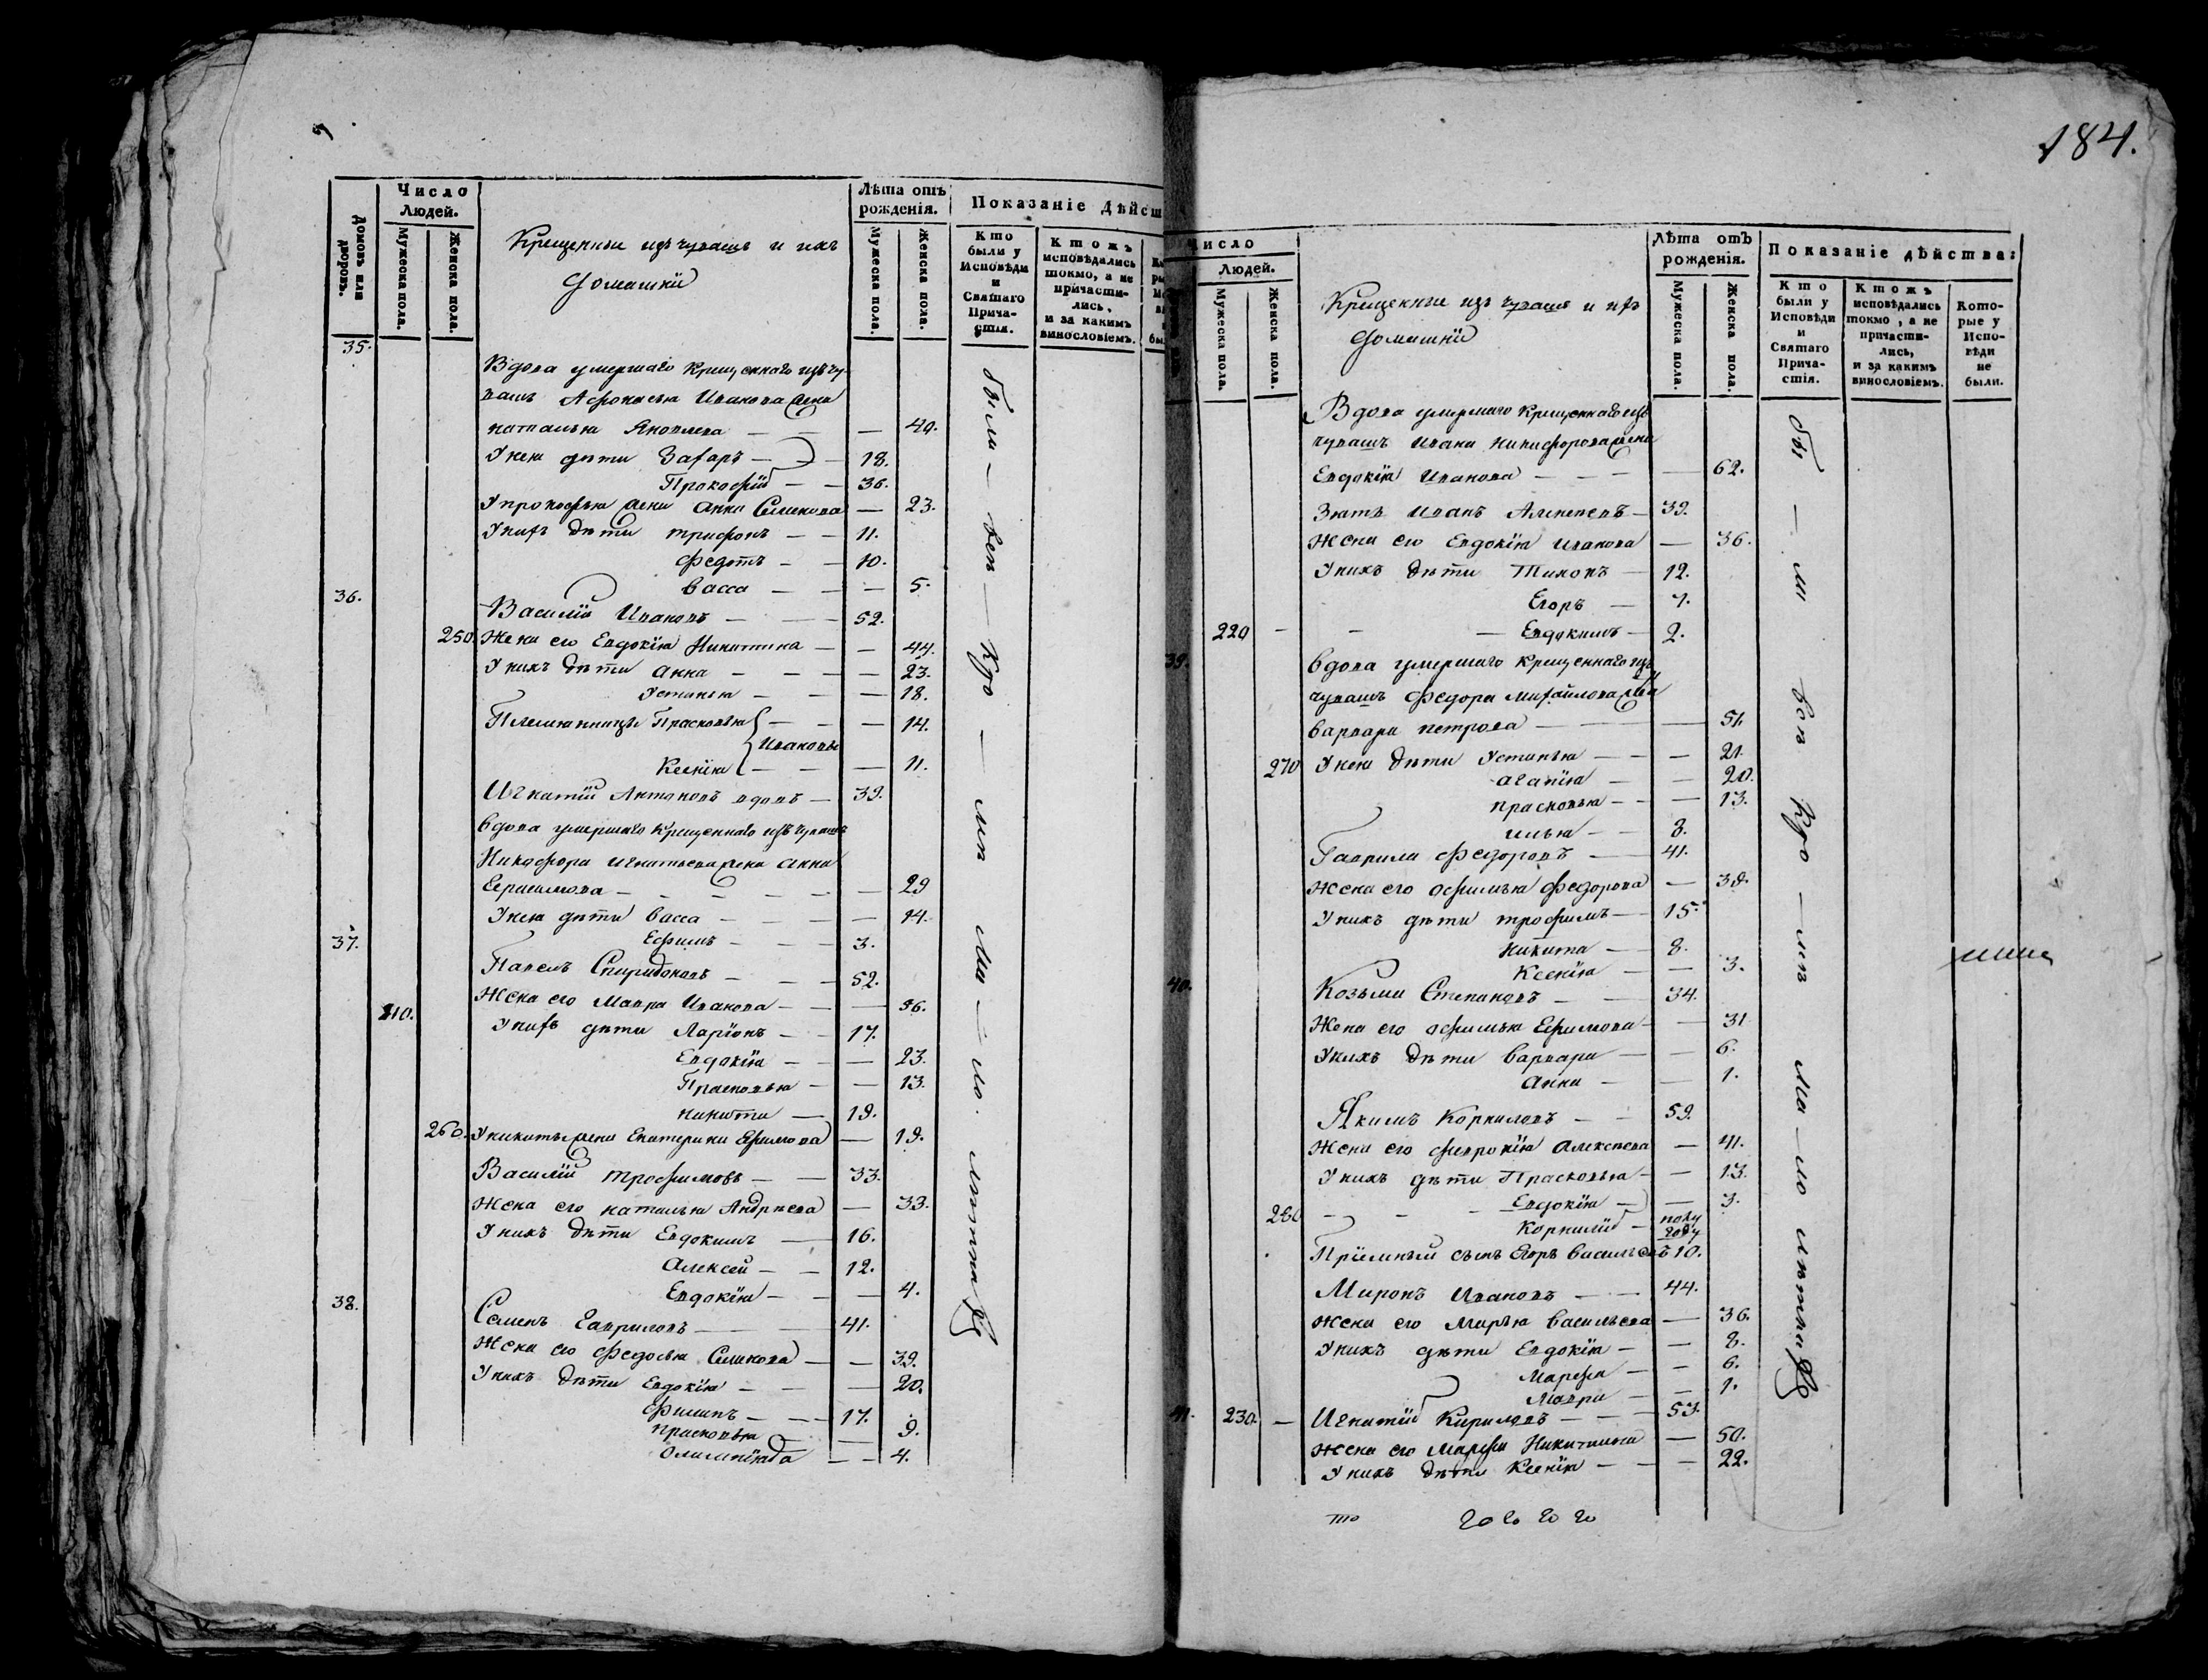 Число
Людей.
Домовъ или дворовъ.
Мужеска пола.
Женска пола.
Крещенныи изъ чувашъ и ихъ
домашнїи
Лѣта отъ
рожденїя.
Мужеска пола.
Женска пола.
Показанїе Дѣйст
Кто
были у
Исповѣди
и
Святаго
Прича-
стїя.
Ктожъ
исповѣдались
токмо, а не
причасти-
лись,
и за какимъ
винословїемъ.
35.
Вдова умершаго крещеннаго изъ чу-
вашъ Афонасья Иванова жена
наталья Яковлева — — — 40.
У нея дѣти Захаръ — 18.
Прокофїй — — 36.
У прокофья жена анна Семенова — 23.
У нихъ дѣти трифонъ — — 11.
федотъ — — 10.
васса — — — 5.
36.
Василїй Ивановъ — — — 52.
250. Жена его Евдокїя Никитина — — 44.
У нихъ дѣти анна — — — 23.
Устинья — — — 18.
Племянницы Прасковья — — — 14.
Ивановы
Ксенїя — — — 11.
Игнатїй Антоновъ вдовъ — 39.
вдова умершаго крещеннаго изъ чувашъ
Никифора игнатьева жена анна
Герасимова — — — — 29
У нея дѣти васса — — — — 14.
Ефимъ — — — 3.
37.
Павелъ Спиридоновъ — — — 52.
Жена его Мавра Иванова — — — 36.
210. У нихъ дѣти Ларїонъ — — 17.
Евдокїя — — — 23.
Прасковья — — 13.
никита — 19.
260. У никиты жена Екатерина Ефимова — 19.
Василїй трофимовъ — — 33.
Жена его наталья Андреева — 33.
У нихъ дѣти Евдокимъ — 16.
Алексей — — 12.
Евдокїя — — — 4.
38.
Семенъ Гавриловъ — 41.
Жена его федосья Семенова — — 39.
У нихъ дѣти Евдокїя — — — 20.
филипъ — — — 17.
прасковья — — 9.
олимпїада — — 4.
были — вси — Кро — мѣ Ма — ло лѣтныхъ
184.
Число
Людей.
Мужеска пола.
Женска пола.
Крещенныи изъ чувашъ и ихъ
домашнїи
Лѣта отъ
рожденїя.
Мужеска пола.
Женска пола.
Показанїе дѣйства:
Кто
были у
Исповѣди
и
Святаго
Прича-
стїя.
Ктожъ
исповѣдались
токмо, а не
причасти-
лись,
и за какимъ
винословїемъ.
Кото-
рые у
Испо-
вѣди
не
были.
Вдова умершаго крещеннаго изъ
чувашъ Ивана никифорова жена
Евдокїя Иванова — — — 62.
Зять Иванъ Алексеевъ — 39.
Жена его Евдокїя Иванова — 36.
У нихъ дѣти Тихонъ — 12.
Егоръ — 7.
220 — — — Евдокимъ — 2.
39.
вдова умершаго крещеннаго изъ
чувашъ федора михайлова жена
варвара петрова — — 51.
270 У нея дѣти Устинья — — — 21.
агапїя — — 20.
прасковья — — — 13.
илья — — 8.
Гаврила федоровъ — 41.
Жена его офимья федорова — 38.
У нихъ дѣти трофимъ — 15.
никита — 8.
Ксенїя — — 3.
40.
Козьма Степановъ — — 34.
Жена его офимья Ефимова — — 31
У нихъ дѣти варвара — — 6.
анна — — 1.
Якимъ Корниловъ — — 59.
Жена его феврония алексеева — 41.
У нихъ дѣти Прасковья — — 13.
280 — — — Евдокїя — — 3.
Корнилїй — полу
году
Прїемный сынъ Егоръ васильевъ 10.
Миронъ Ивановъ — — 44.
Жена его Марья васильева — 36.
У нихъ дѣти Евдокїя — — 8.
Марфа — — 6.
Мавра — — 1.
41. 230. — Игнатїй Кириловъ — — — 53.
Жена его Марфа Никитина — 50.
У нихъ дѣти Ксенїя — — — 22.
бы — ли вси Кро — мѣ Ма — ло лѣтныхъ